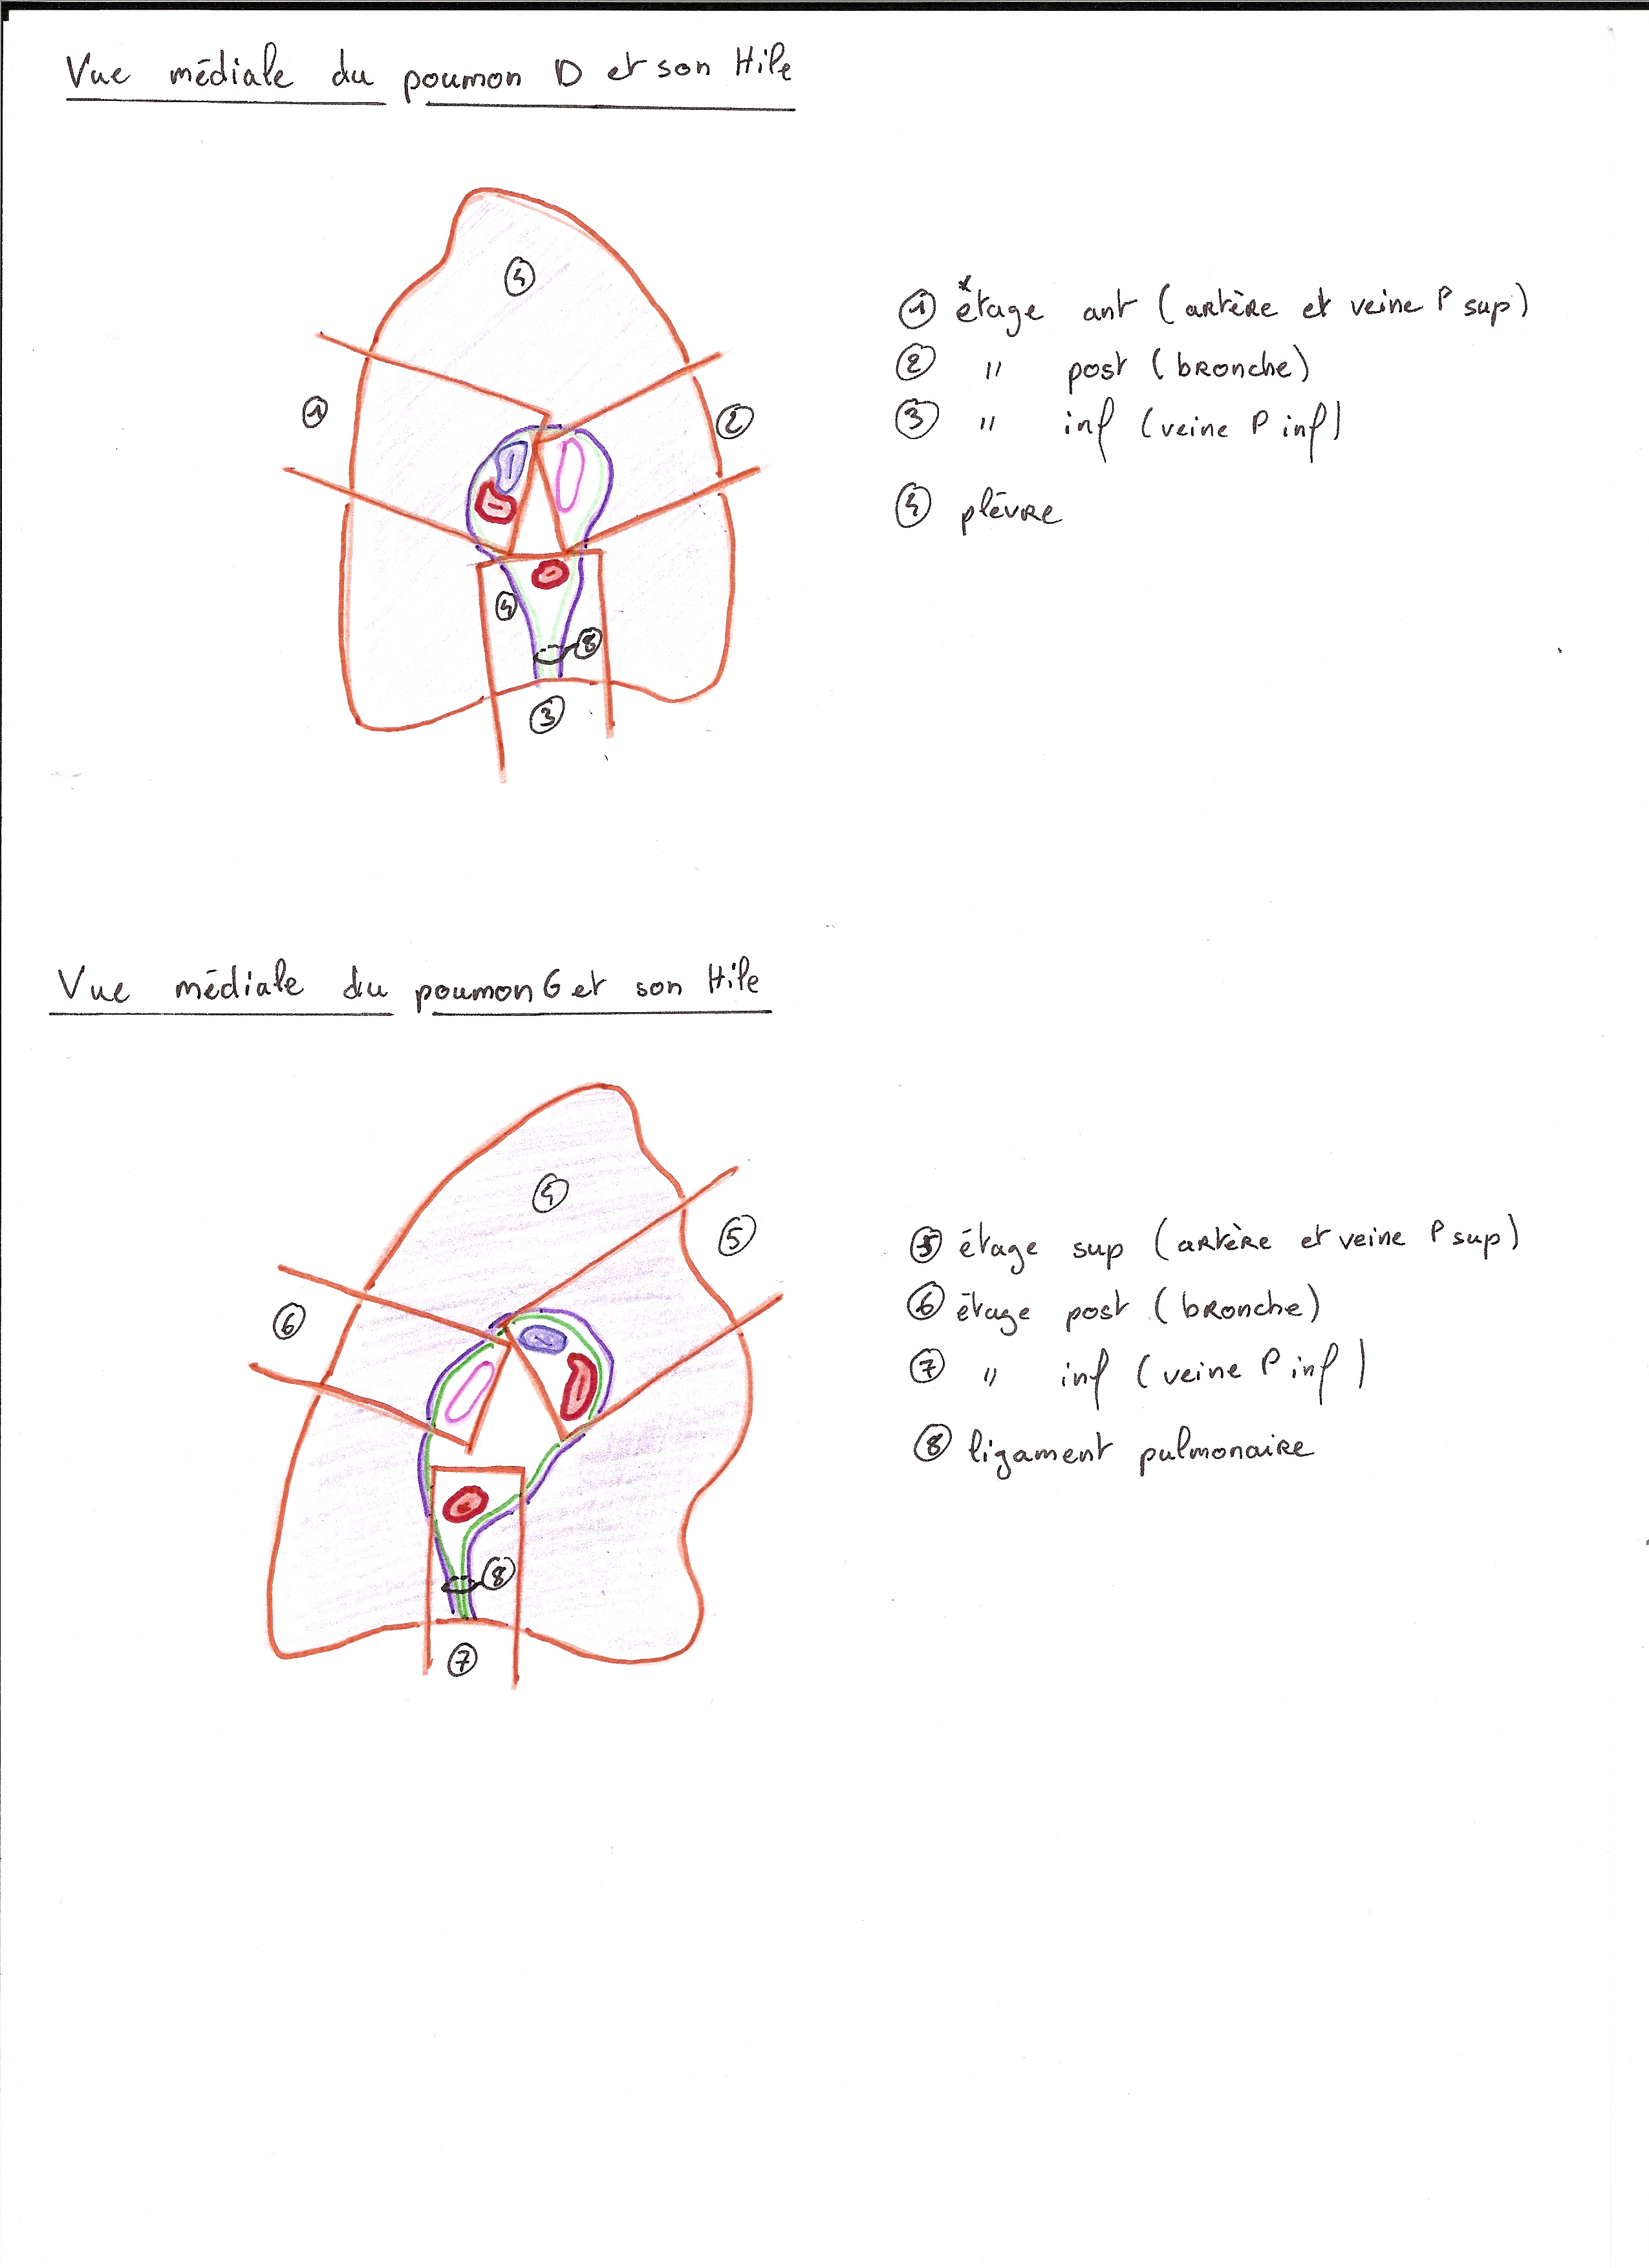 Vue médiale du poumon D et son Hile
④
①
②
④
⑧
③
① *étage ant (artère et veine P sup)
② " post (bronche)
③ " inf (veine P inf)
④ plèvre
Vue médiale du poumon G et son Hile
④
⑤
⑥
⑧
⑦
⑤ étage sup (artère et veine P sup)
⑥ étage post (bronche)
⑦ " inf (veine P inf)
⑧ ligament pulmonaire